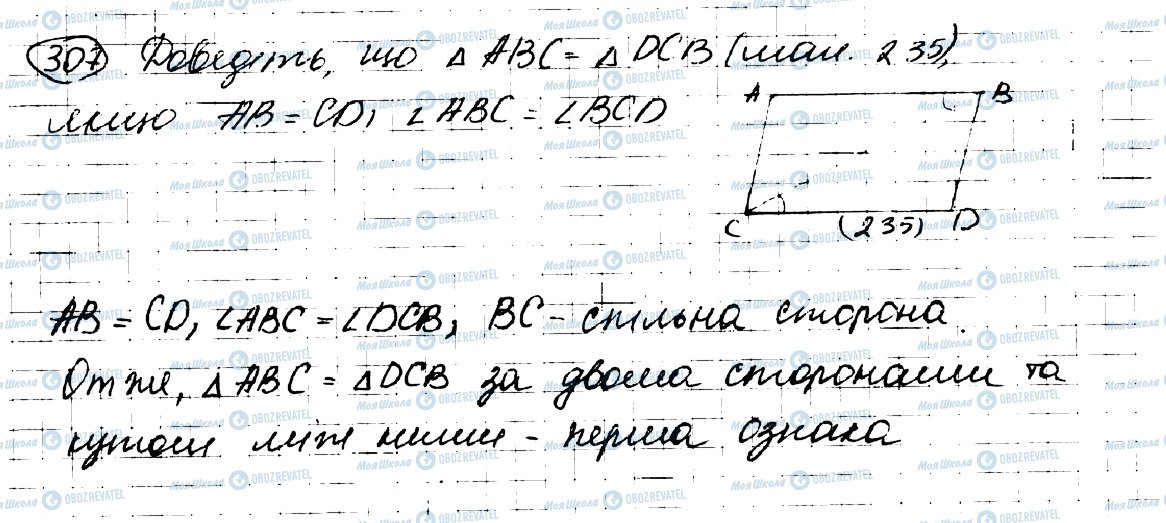 307 Доведіть, що △ ABC = △ DCB (мал. 235),
якщо AB = CD, ∠ABC = ∠BCD
A B
C (235) D
AB = CD, ∠ABC = ∠DCB, BC - спільна сторона.
Отже, △ ABC = △ DCB за двома сторонами та
кутом між ними - перша ознака
МояШкола OBOZREVATEL